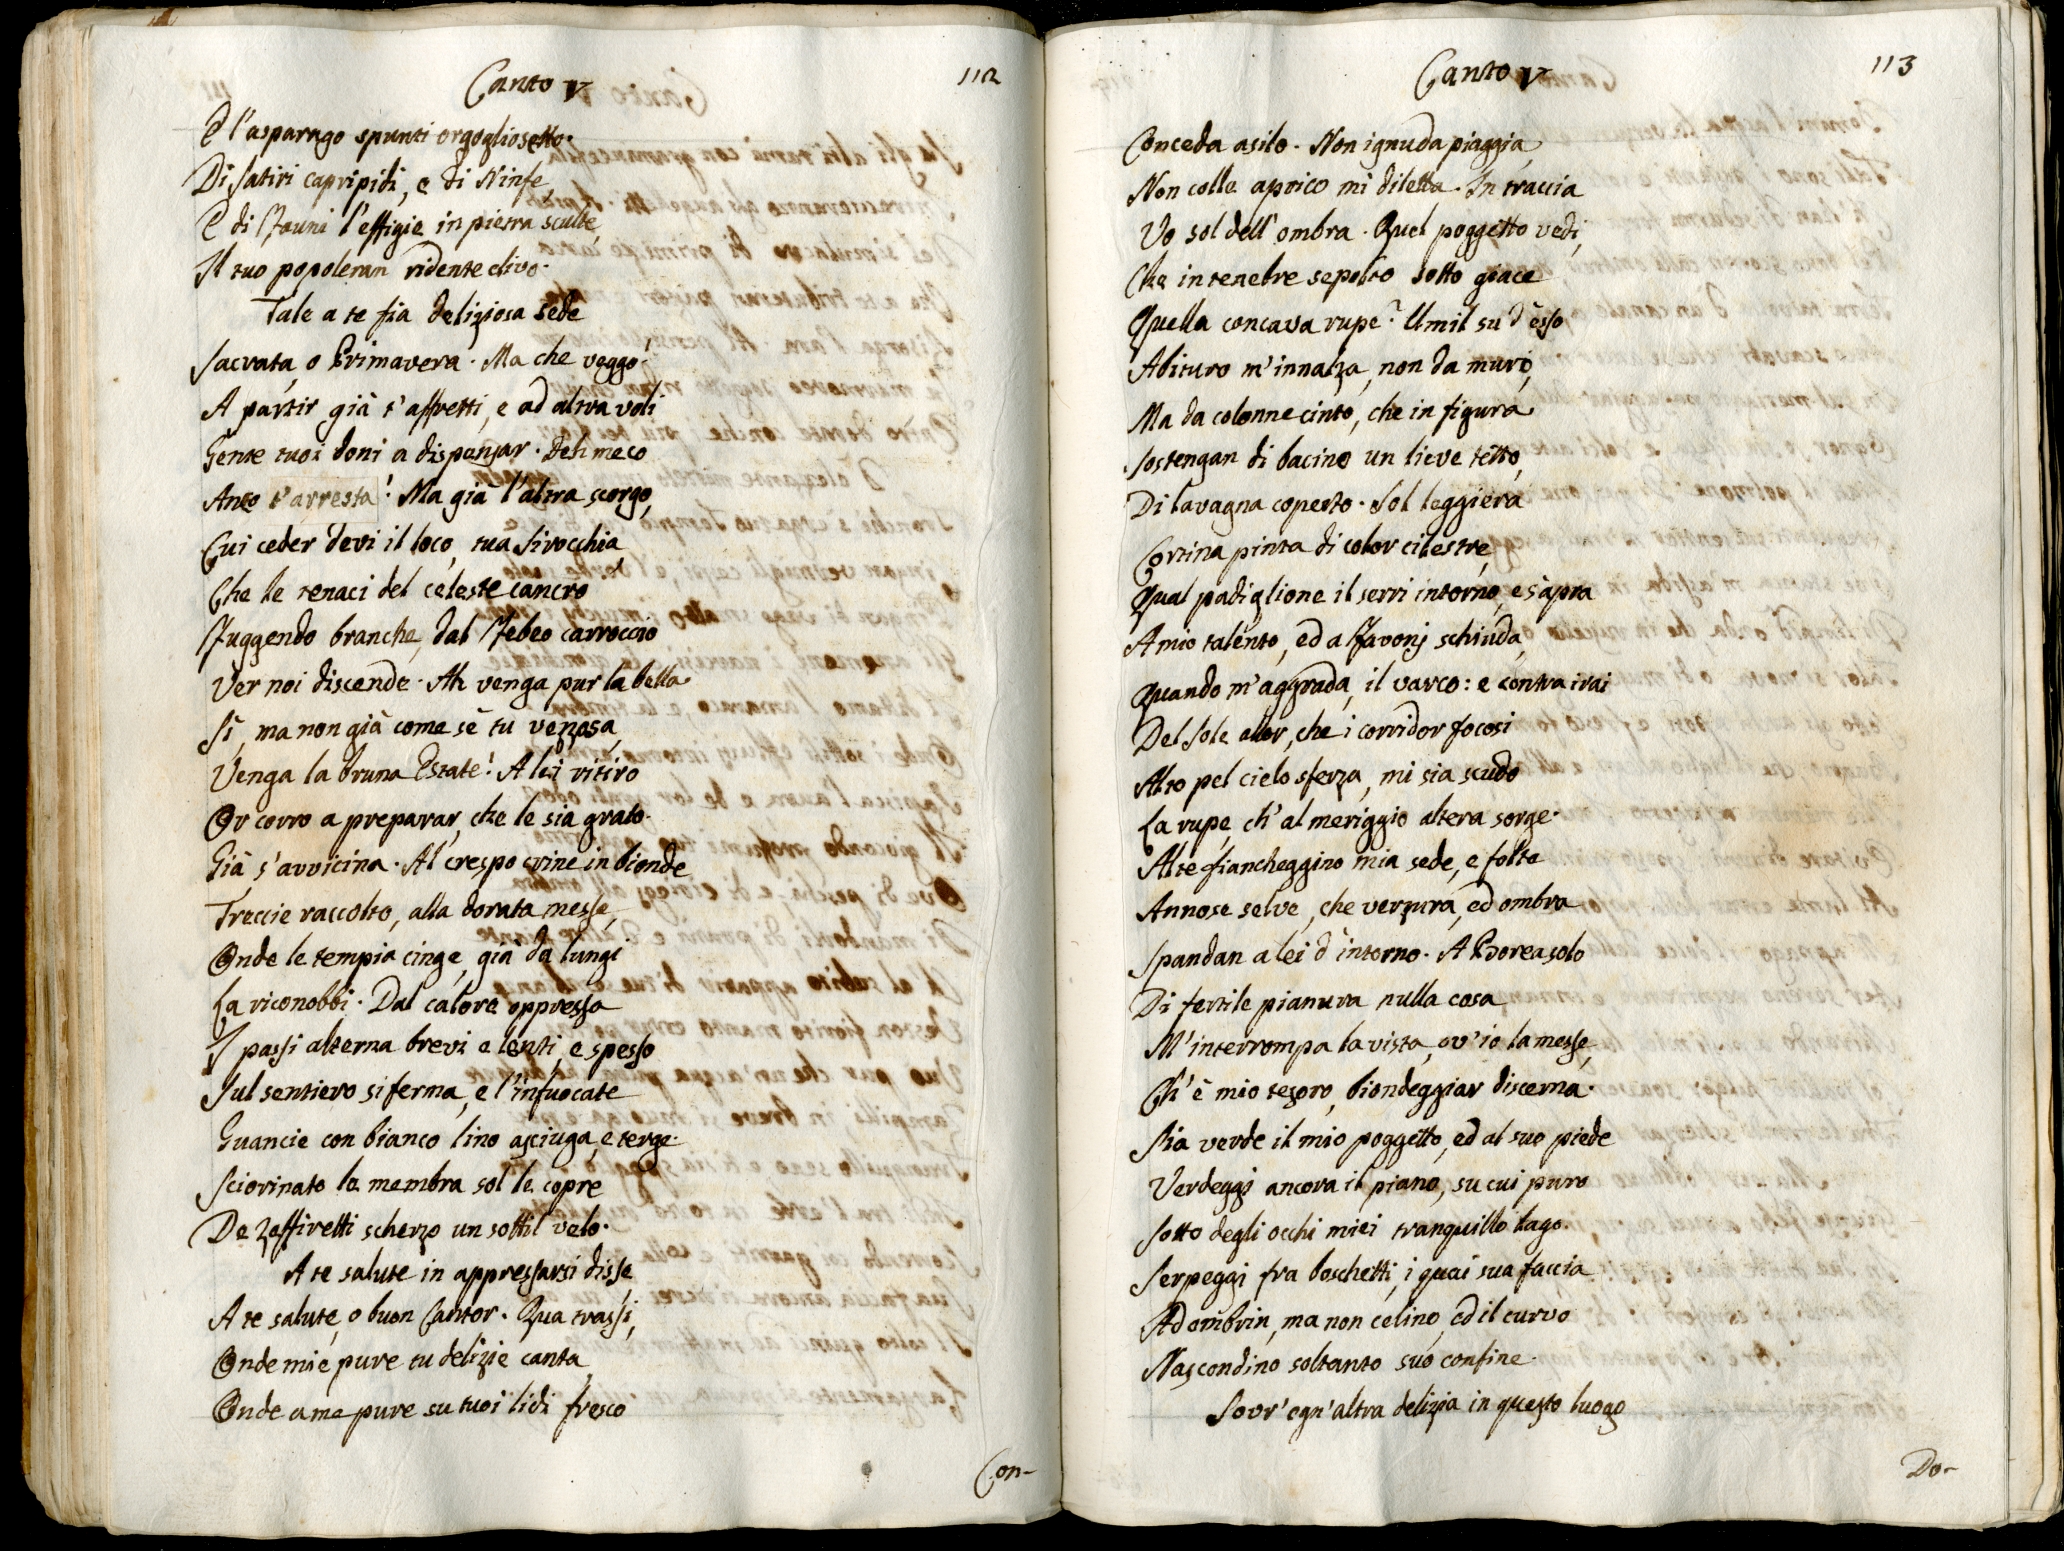 Canto V
112
E l'asparago spunti orgogliosetto.
Di Satiri capripidi, e di Ninfe,
E di Fauni l'effigie in pietra sculte,
Il tuo popoleran ridente clivo.
Tale a te fia deliziosa sede
Sacrata, o Primavera. Ma che veggo!
A partir già t'affretti, e ad altra voli
Gente tuoi doni a dispensar. Deh meco
Anco t'arresta! Ma già l'altra scorgo,
Cui ceder devi il loco, tua Sirocchia,
Che le tenaci del celeste cancro
Fuggendo branche, dal Febeo carroccio
Ver noi discende. Ah venga pur la bella
Sì, ma non già come sè tu vezosa,
Venga la bruna Estate! A lei ritiro
Or corro a preparar, che le sia grato.
Già s'avvicina. Al crespo crine in bionde
Treccie raccolto, alla dorata messe,
Onde le tempia cinge, già da lungi
La riconobbi. Dal calore oppressa
I passi alterna brevi e lenti, e spesso
Sul sentiero si ferma, e l'infuocate
Guancie con bianco lino asciuga, e terge.
Sciorinato le membra sol le copre
De Zeffiretti scherzo un sottil velo.
A te salute in appressarsi disse,
A te salute, o buon Cantor. Qua trassi,
Onde mie pure tu delizie canta,
Onde a me pure su tuoi lidi fresco
Con-
Canto V
113
Conceda asilo. Non ignuda piaggia,
Non colle aprico mi diletta. In traccia
Vo sol dell'ombra. Quel poggetto vedi,
Che in tenebre sepolto sotto giace
Quella concava rupe? Umil su d'esso
Abituro m'innalza, non da muri,
Ma da colonne cinto, che in figura
Sostengan di bacino un lieve tetto,
Di lavagna coperto. Sol leggiera
Cortina pinta di color cilestre,
Qual padiglione il serri intorno, e s'apra
A mio talento, ed a Favonj schiuda,
Quando m'aggrada, il varco: e contra i rai
Del Sole allor, che i corridor focosi
Alto pel cielo sferza, mi sia scudo
La rupe, ch'al meriggio altera sorge.
Alte fiancheggino mia sede, e folte
Annose selve, che verzura, ed ombra
Spandan a lei d'intorno. A Borea solo
Di fertile pianura nulla cosa
M'interrompa la vista, ov'io la messe,
Ch'è mio tesoro, biondeggiar discerna.
Sia verde il mio poggetto, ed al suo piede
Verdeggi ancora il piano, su cui puro
Sotto degli occhi miei tranquillo lago
Serpeggi fra boschetti, i quai sua faccia
Adombrin, ma non celino, ed il curvo
Nascondino soltanto suo confine.
Sovr'ogn'altra delizia in questo luogo
Do-